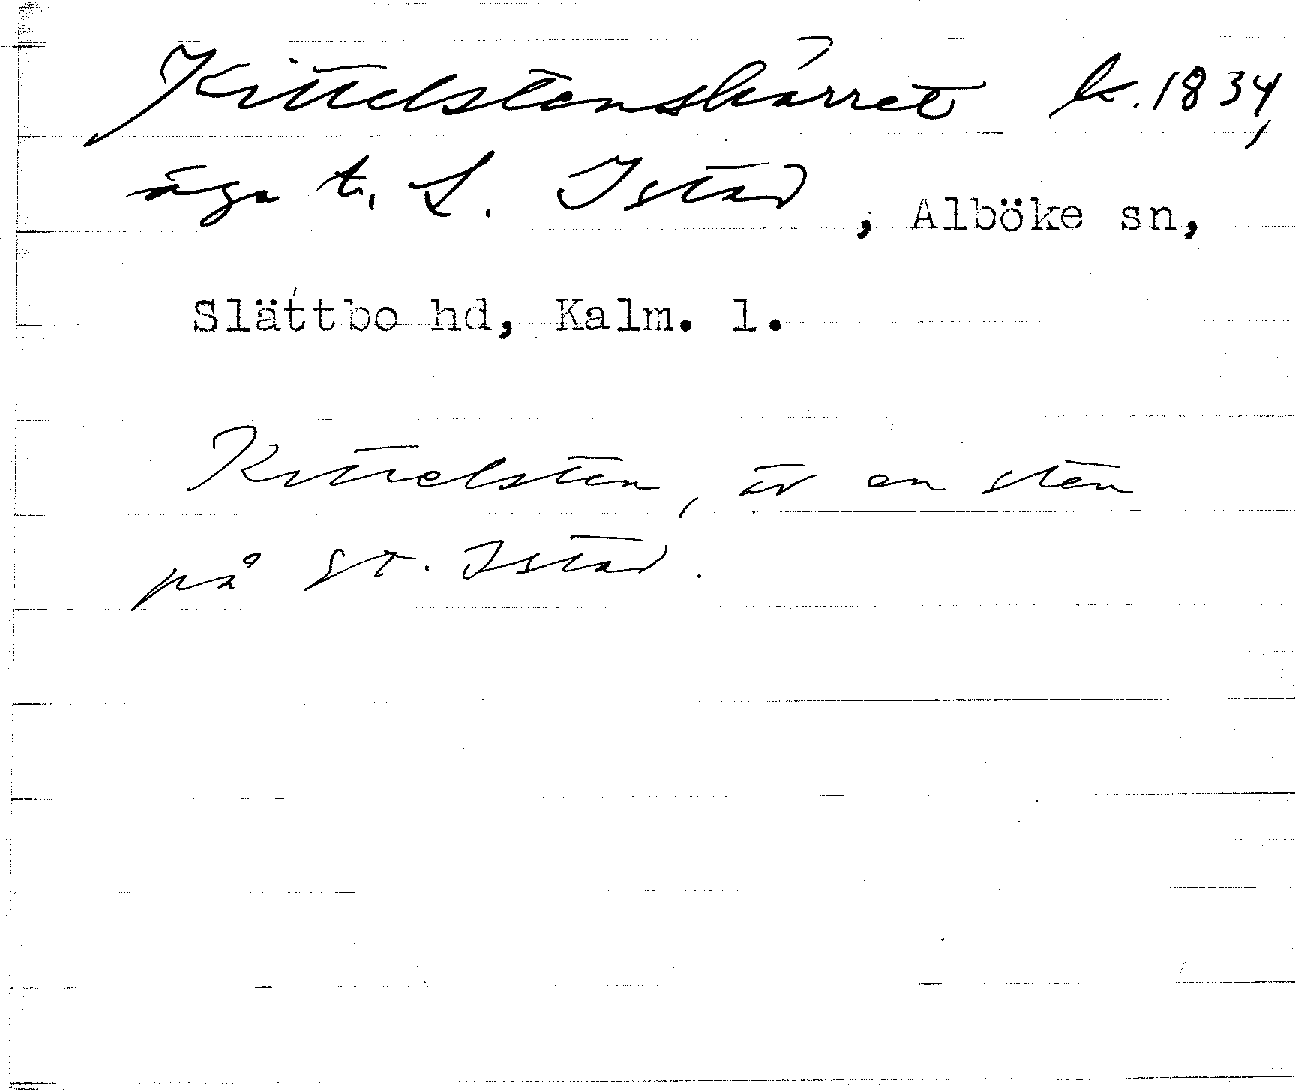 Kittelstenskärret k. 1834,
äga t. L. Istad, Alböke sn,
Slättbo hd, Kalm. l.
Kittelsten, är en sten
på St. Istad.